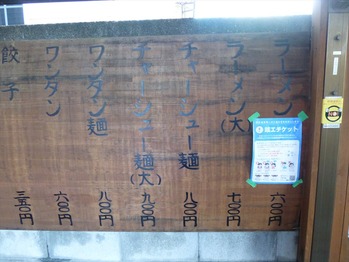 ラーメン 六〇〇円
ラーメン(大) 七〇〇円
チャーシュー麺 八〇〇円
チャーシュー麺(大) 九〇〇円
ワンタン麺 八〇〇円
ワンタン 六〇〇円
餃子 三五〇円
エチケット